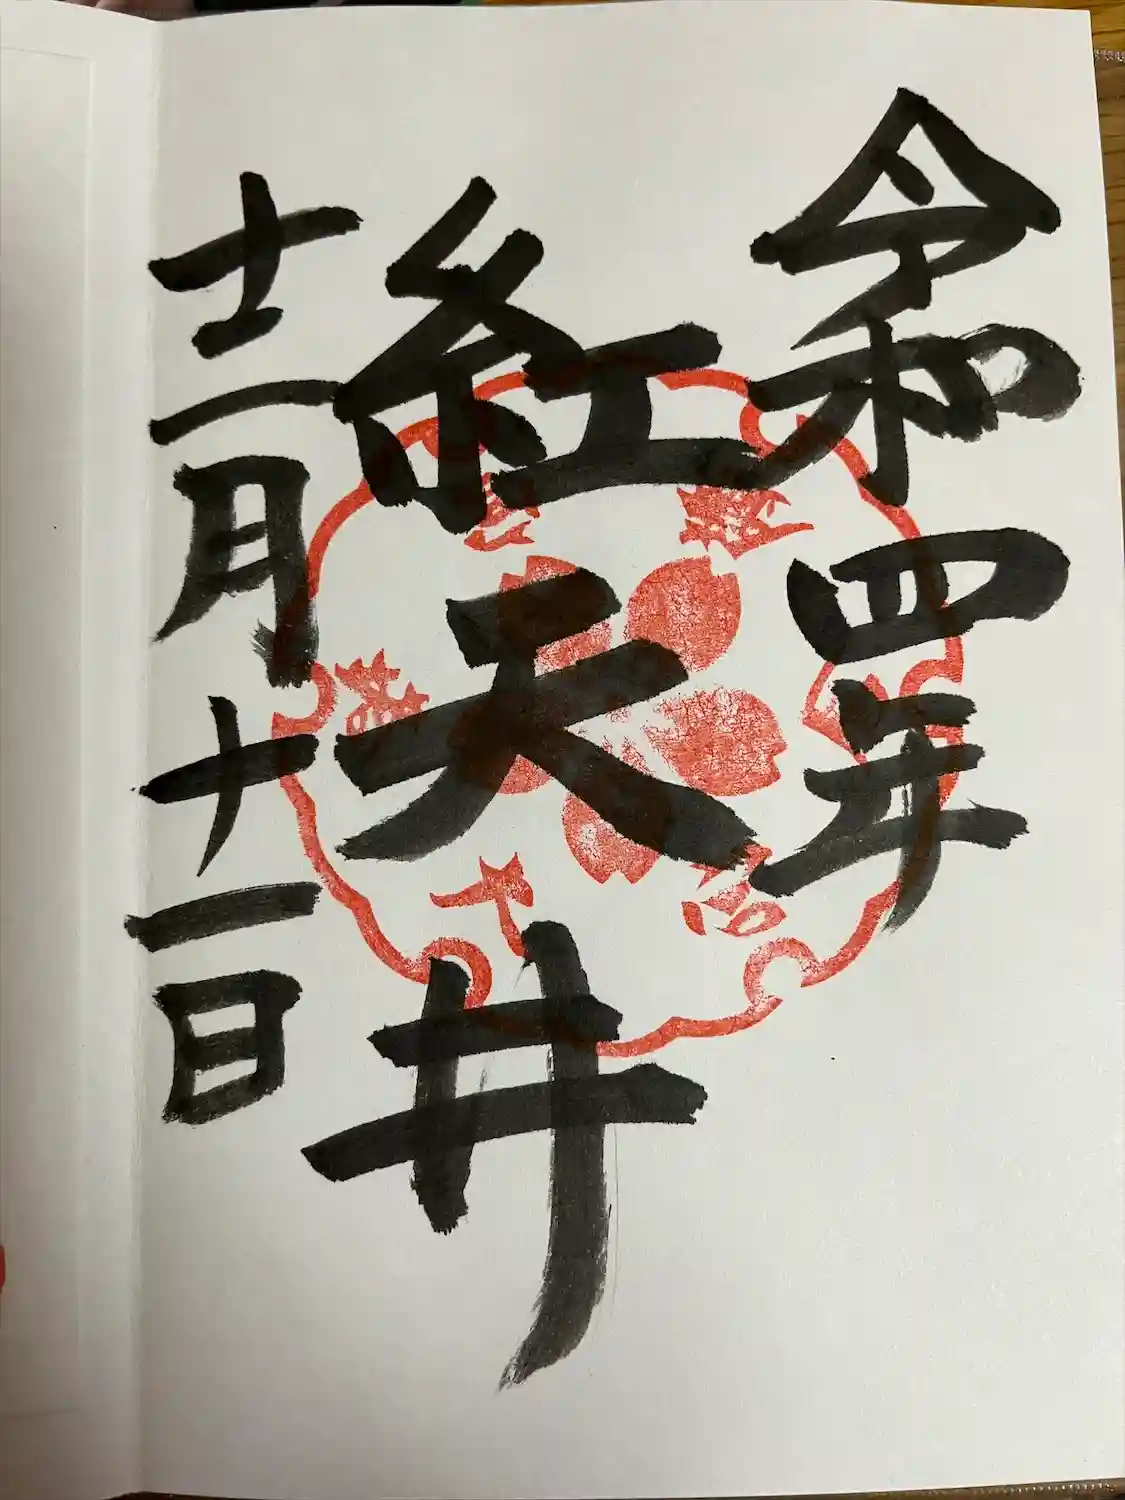 令和四年
紅天井
十二月十二日